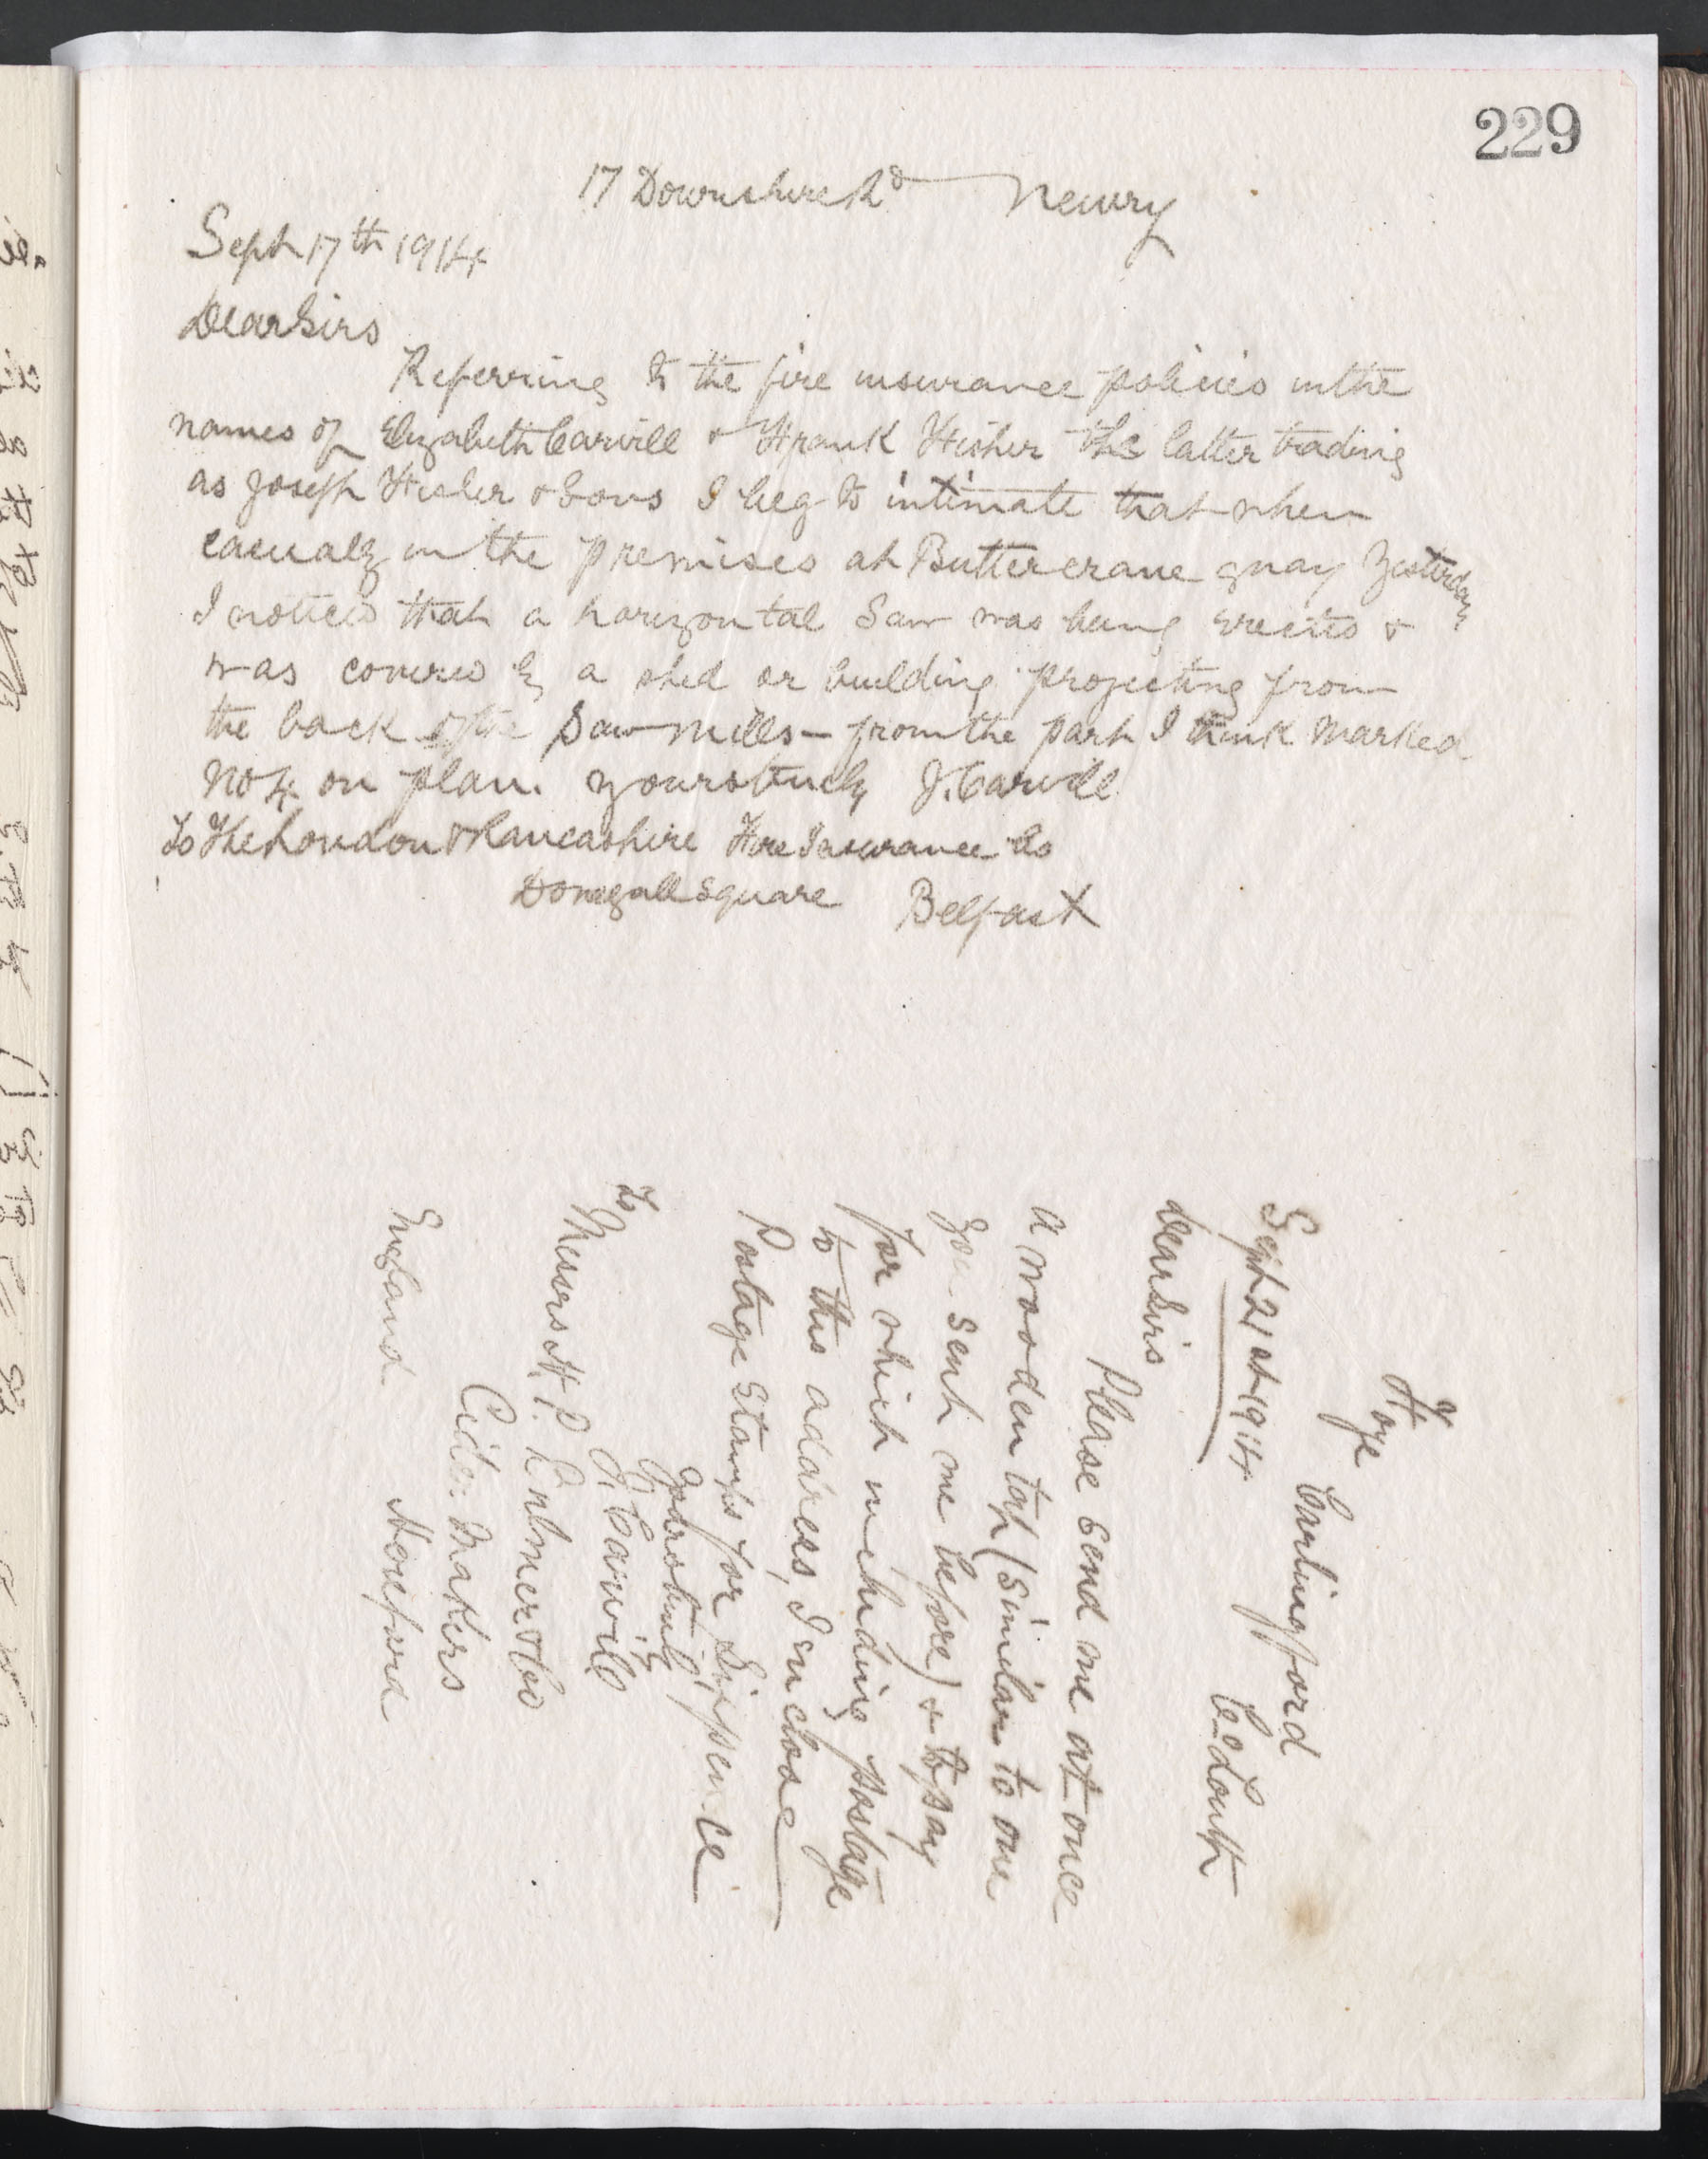 229
17 Downshire Rd Newry
Sept 17th 1914
Dear Sirs
Referring to the fire insurance policies in the
names of Elizabeth Carvill & Frank Fisher the latter trading
as Joseph Fisher & Sons I beg to intimate that when
casualy in the premises at Buttercrane quay Yesterday
I noticed that a horizontal Saw was being erected &
was covered by a shed or building projecting from
the back of the Saw mills – from the part I think marked
No 4 on plan. yours truly J. Carvill
To The London & Lancashire Fire Insurance Co
Donegall Square Belfast
Carlingford
Co Louth
Sept 21st 1914
Dear Sirs
Please send me at once
a wooden tap (similar to one
you sent me before) & to pay
for which including postage
to this address, I enclose
Postage Stamps for Sixpence
Yours truly
J. Carvill
To
Messrs H. P. Bulmer & Co
Cider Makers
England Hereford